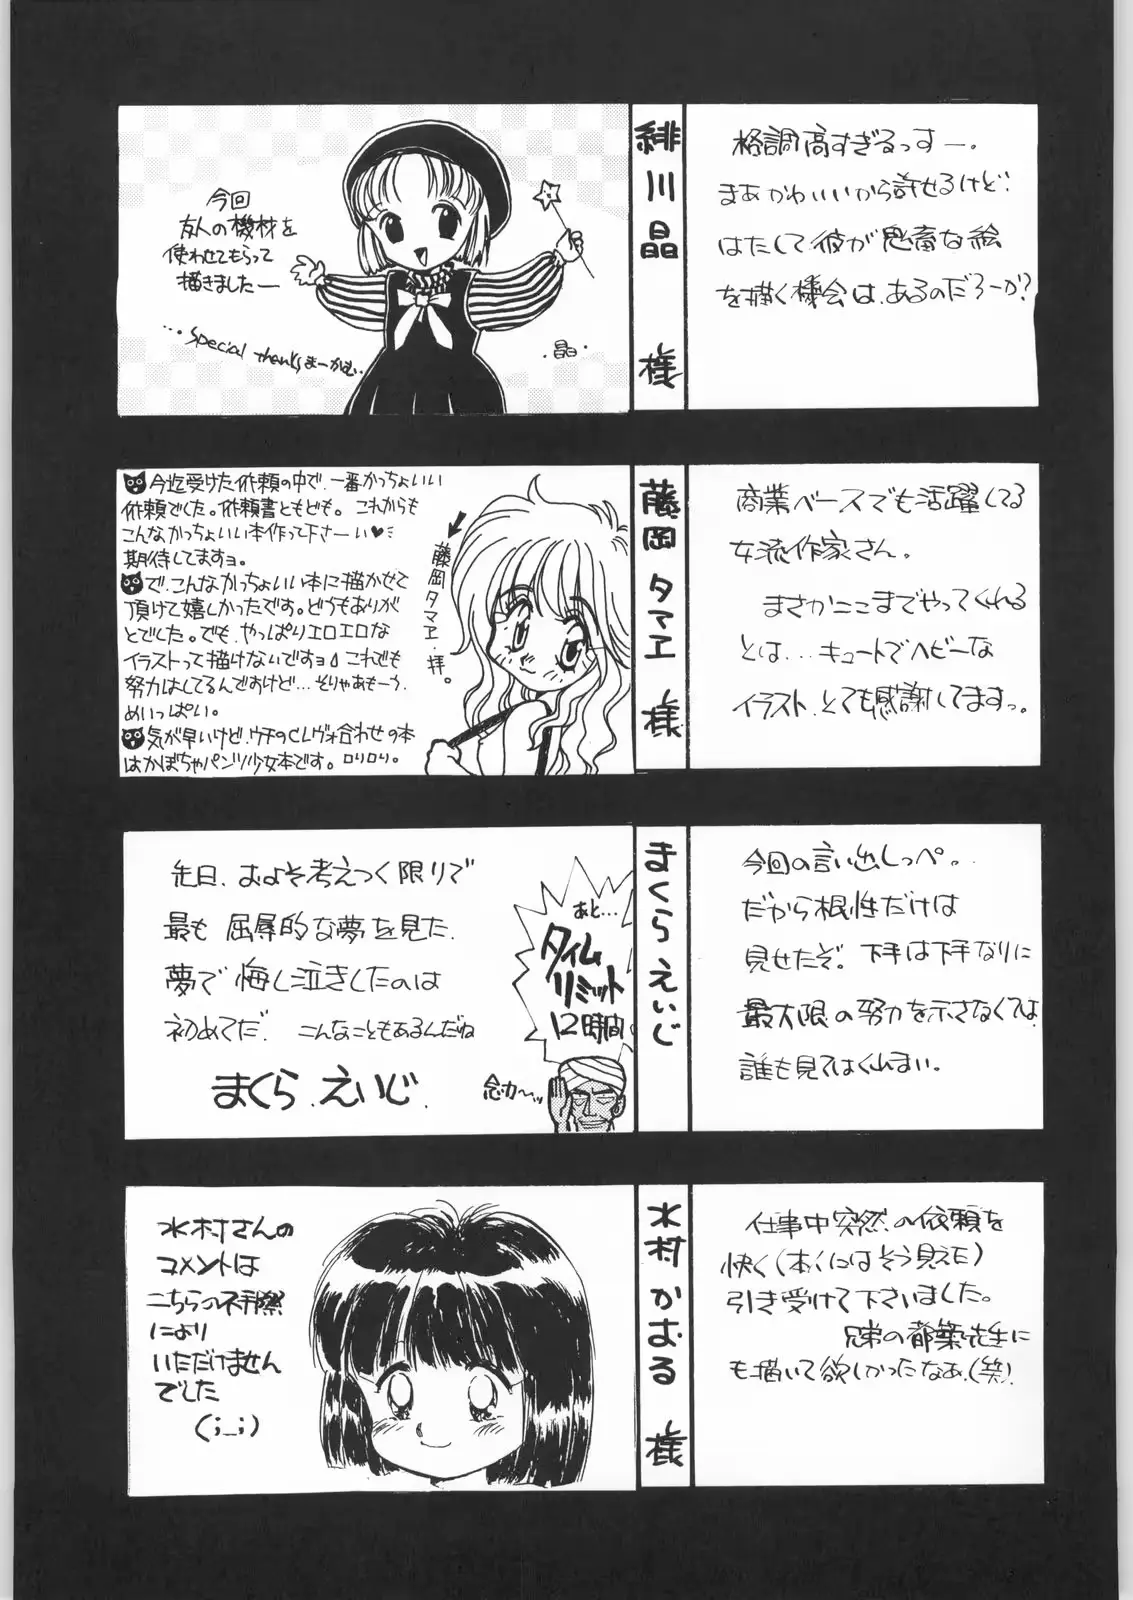 今回
友人の機材を
使わせてもらって
描きましたー
…Special thanksまーかむ…
・晶・
緋川晶 様
格調高すぎるっすー。
まあかわいいから許せるけど、
はたして彼が鬼畜な絵
を描く機会は、あるのだろーか?
今迄受けた依頼の中で、一番かっちょいい
依頼でした。依頼書ともども。これからも
こんなかっちょいい本作って下さーい♥
期待してますョ。
で、こんなかっちょいい本に描かせて
頂けて嬉しかったです。どうもありが
とでした。でも、やっぱりエロエロな
イラストって描けないですョ。これでも
努力はしてるんですけど…そりゃあもーう、
めいっぱい。
気が早いけど、ウチのCレヴォ合わせの本
はかぼちゃパンツ少女本です。ロリロリ。
藤岡タマヱ・拝。
藤岡タマヱ 様
商業ベースでも活躍してる
女流作家さん。
まさかここまでやってくれる
とは…キュートでヘビーな
イラスト、とても感謝してますっ。
先日、およそ考えつく限りで
最も屈辱的な夢を見た。
夢で悔し泣きしたのは
初めてだ。こんなこともあるんだね
まくら.えいじ.
あと…
タイム
リミット
12時間
念力〜ッ
まくらえいじ
今回の言い出しっぺ。
だから根性だけは
見せたぞ。下手は下手なりに
最大限の努力を示さなくては、
誰も見てはくれまい。
水村さんの
コメントは
こちらの不手際
により
いただけません
でした
(;_;)
水村かおる 様
仕事中突然の依頼を
快く(本人にはそう見えた)
引き受けて下さいました。
兄弟の都築先生に
も描いて欲しかったなあ、(笑)